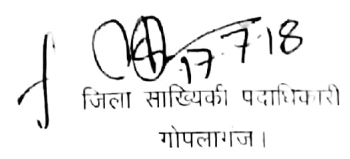 17.7.18
जिला साख्यिकी पदाधिकारी
गोपलागज।